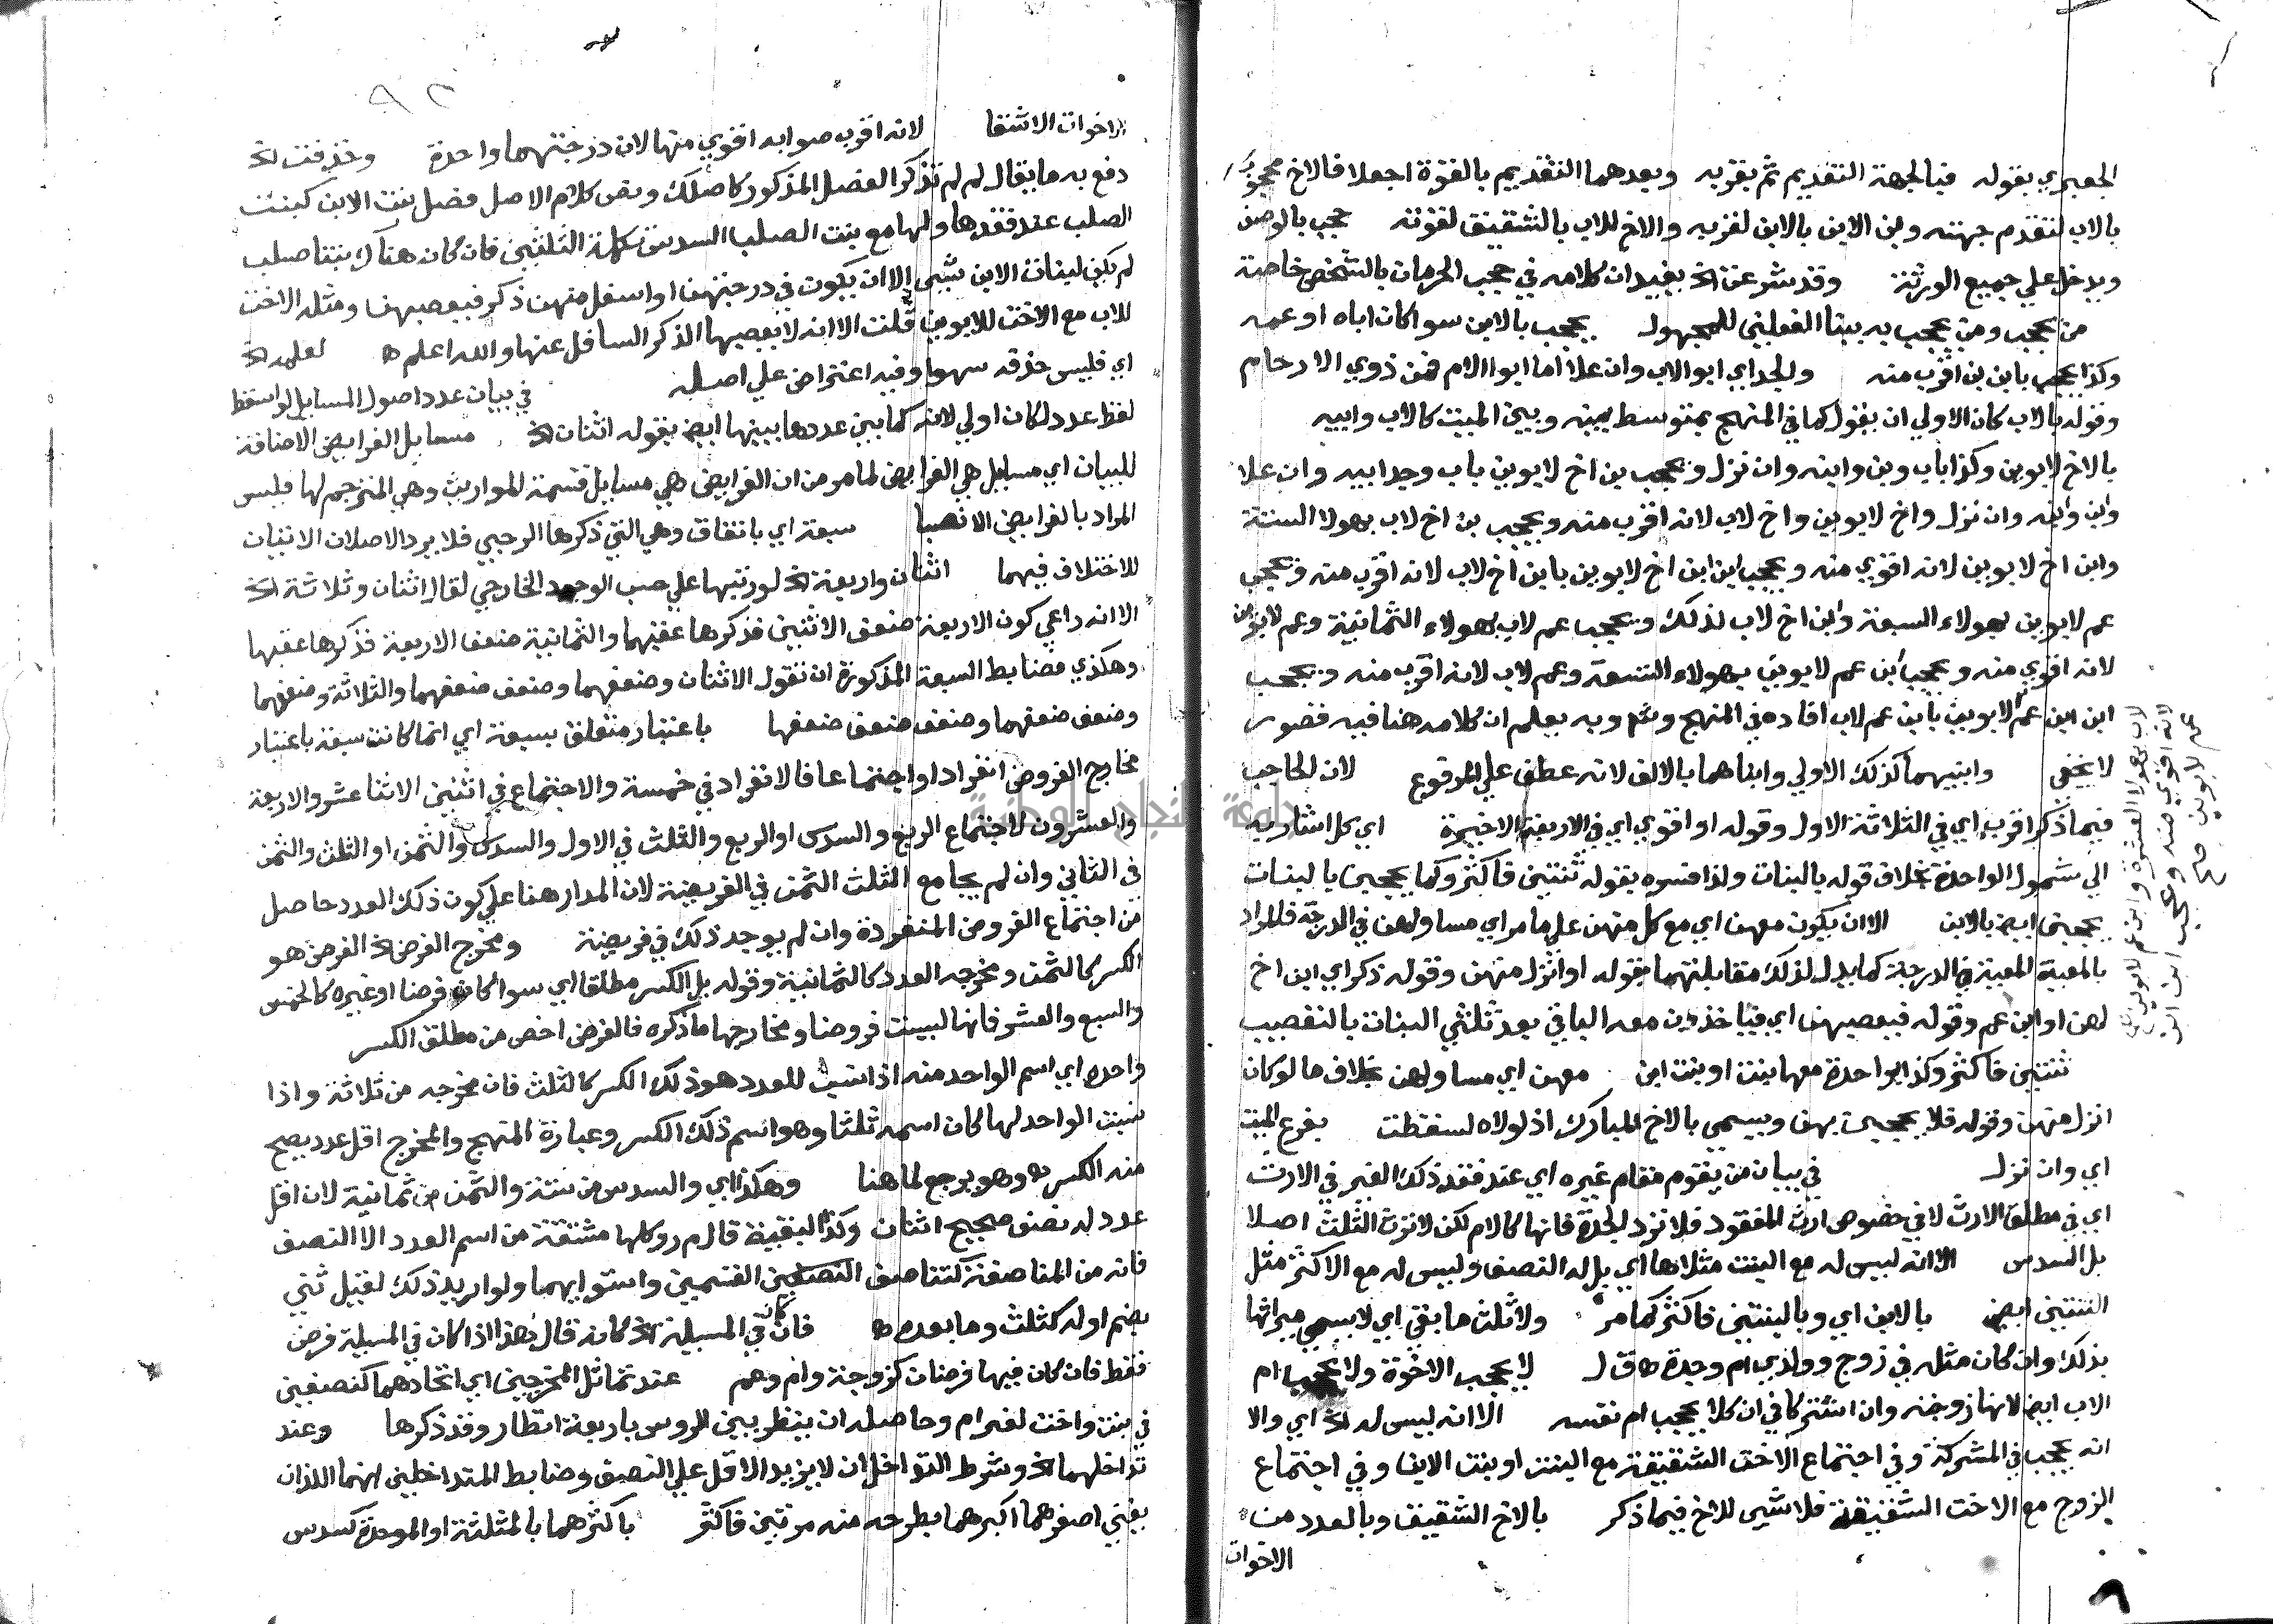 الجعبري بقوله فبالجهة التقديم ثم بقربه وبعدهما التقديم بالقوة اجعلا فالاخ محجوب
بالاب لتقدم جهته وبن الابن بالابن لقربه والاخ للاب بالشقيق لقوته حجب بالوصف
ويدخل علي جميع الورثة وقد شرع الخ يفيد ان كلامه في حجب الحرمان بالشخص خاصة
من يحجب ومن يحجب به ببنا الفعلين للمجهول يحجب بالابن سوا كان اباه او عمه
وكذا يحجب بابن بن اقرب منه والجد اي ابو الاب وان علا اما ابو الام فمن ذوي الارحام
وقوله بالاب كان الاولي ان يقول كما في المنهج بمتوسط بينه وبين الميت كالاب وابيه
بالاخ لابوين وكذا باب وبن وابنه وان نزل ويحجب بن اخ لابوين باب وجد ابيه وان علا
وابن وابنه وان نزل واخ لابوين واخ لاب لانه اقرب منه ويحجب بن اخ لاب بهولا الستة
وابن اخ لابوين لانه اقوي منه ويحجب ابن ابن اخ لابوين بابن اخ لاب لانه اقرب منه ويحجب
عم لابوين بهولاء السبعة وابن اخ لاب لذلك ويحجب عم لاب بهولاء الثمانية وعم لابوين
لانه اقوي منه ويحجب ابن عم لابوين بهولاء التسعة وعم لاب لانه اقرب منه ويحجب
ابن ابن عم لابوين بابن عم لاب افاده في المنهج وبه يعلم ان كلامه هنا فيه قصور
لا يخفي وابنيهما كذلك الاولي وابناهما بالالف لانه عطف علي المرفوع لان الحاجب
فيما ذكر اقرب اي في الثلاثة الاول وقوله او اقوي اي في الاربعة الاخيرة اي كل اشار به
الي شمول الواحدة بخلاف قوله بالبنات ولذا فسره بقوله ثنتين فاكثر وكما يحجبن بالبنات
يحجبن ايضا بالابن الا ان يكون معهن اي مع كل منهن علي ما مر اي مساو لهن في الدرجة فالمراد
بالمعية المعية في الدرجة كما يدل لذلك مقابلتهما بقوله او انزل منهن وقوله ذكر اي ابن اخ
لهن او ابن عم وقوله فيعصبهن اي فياخذون معه الباقي بعد ثلثي البنات بالتعصيب
ثنتين فاكثر وكذا بواحدة معها بنت او بنت ابن معهن اي مساو لهن بخلاف ما لو كان
انزل منهن وقوله فلا يحجبن بهن ويسمي بالاخ المبارك اذ لولاه لسقطت بفرع الميت
اي وان نزل في بيان من يقوم مقام غيره اي عند فقد ذلك الغير في الارث
اي في مطلق الارث لا في خصوص ارث المفقود فلا ترد الجدة فانها كالام لكن لا ترث الثلث اصلا
بل السدس الا انه ليس له مع البنت مثلاها اي بل له النصف وليس له مع الاكثر مثل
الثنتين ايضا بالابن اي وبالبنتين فاكثر كما مر ولا ثلث ما بقي اي لا يسمي ميراثها
بذلك وان كان مثله في زوج وولدي ام وجدة لا يحجب الاخوة ولا يحجب ام
الاب ايضا لانها زوجته وان اشتركا في ان كلا يحجب ام نفسه الا انه ليس له الخ اي والا
انه يحجب في المشركة وفي اجتماع الاخت الشقيقة مع البنت او بنت الابن وفي اجتماع
الزوج مع الاخت الشقيقة فلا شيء للاخ فيما ذكر بالاخ الشقيق وبالعدد من
الاخوات
لاب بهولا العشرة وابن عم لابوين
لانه اقوي منه ويحجب ابن ابن
عم لابوين
٩٢
الاخوات الاشقا لانه اقرب صوابه اقوي منها لان درجتهما واحدة وحذفت الخ
دفع به ما يقال لم لم تذكر الفصل المذكور كاصلك ونص كلام الاصل فصل بنت الابن كبنت
الصلب عند فقدها ولها مع بنت الصلب السدس تكملة الثلثين فان كان هناك بنتا صلب
لم يكن لبنات الابن شي الا ان يكون في درجتهن او اسفل منهن ذكر فيعصبهن ومثله الاخت
للاب مع الاخت للابوين قلت الا انه لا يعصبها الذكر السافل عنها والله اعلم لعلمه الخ
اي فليس حذفه سهوا وفيه اعتراض علي اصله في بيان عدد اصول المسايل لو اسقط
لفظ عدد لكان اولي لانه كما بين عددها بينها ايضا بقوله اثنان الخ مسايل الفرايض الاضافة
للبيان اي مسايل هي الفرايض لما مر من ان الفرايض هي مسايل قسمة المواريث وهي المترجم لها فليس
المراد بالفرايض الانصبا سبعة اي باتفاق وهي التي ذكرها الرحبي فلا يرد الاصلان الاتيان
للاختلاف فيهما اثنان واربعة الخ لو رتبها علي حسب الوجود الخارجي لقال اثنان وثلاثة الخ
الا انه راعي كون الاربعة ضعف الاثنين فذكرها عقبهما والثمانية ضعف الاربعة فذكرها عقبها
وهكذي فضابط السبعة المذكورة ان تقول الاثنان وضعفهما وضعف ضعفهما والثلاثة وضعفهما
وضعف ضعفهما وضعف ضعف ضعفها باعتبار متعلق بسبعة اي انما كانت سبعة باعتبار
مخارج الفروض انفرادا واجتماعا فالانفراد في خمسة والاجتماع في اثنين الاثنا عشر والاربعة
والعشرون لاجتماع الربع والسدس او الربع والثلث في الاول والسدس والثمن او الثلث والثمن
في الثاني وان لم يجامع الثلث الثمن في الفريضة لان المدار هنا علي كون ذلك العدد حاصل
من اجتماع الفروض المنفردة وان لم يوجد ذلك في فريضة ومخرج الفرض الخ الفرض هو
الكسر كالثمن ومخرجه العدد كالثمانية وقوله بل الكسر مطلقا اي سوا كان فرضا او غيره كالخمس
والسبع والعشر فانها ليست فروضا ومخارجها ما ذكره فالفرض اخص من مطلق الكسر
واحده اي اسم الواحد منه اذا نسب للعدد هو ذلك الكسر كالثلث فان مخرجه من ثلاثة واذا
نسبت الواحد لها كان اسمه ثلثا وهو اسم ذلك الكسر وعبارة المنهج والمخرج اقل عدد يصح
منه الكسر وهو يرجع لما هنا وهكذا اي والسدس من ستة والثمن من ثمانية لان اقل
عدد له نصف صحيح اثنان وكذا البقية قال م ر وكلها مشتقة من اسم العدد الا النصف
فانه من المناصفة لتناصف القسمين واستوايهما ولو اريد ذلك لقيل ثني
بضم اوله كثلث وما بعده فان كان في المسيلة الخ كانه قال هذا اذا كان في المسيلة فرض
فقط فان كان فيها فرضان كزوجة وام وهم عند تماثل المخرجين اي اتحادهما كنصفين
في بنت واخت لغير ام وحاصله ان ينظر بين الروس باربعة انظار وقد ذكرها وعند
تداخلهما الخ وشرط التداخل ان لا يزيد الاقل علي النصف وضابط المتداخلين انهما اللذان
يفني اصغرهما اكبرهما بطرحه منه مرتين فاكثر باكثرهما بالمثلثة او الموحدة كسدس